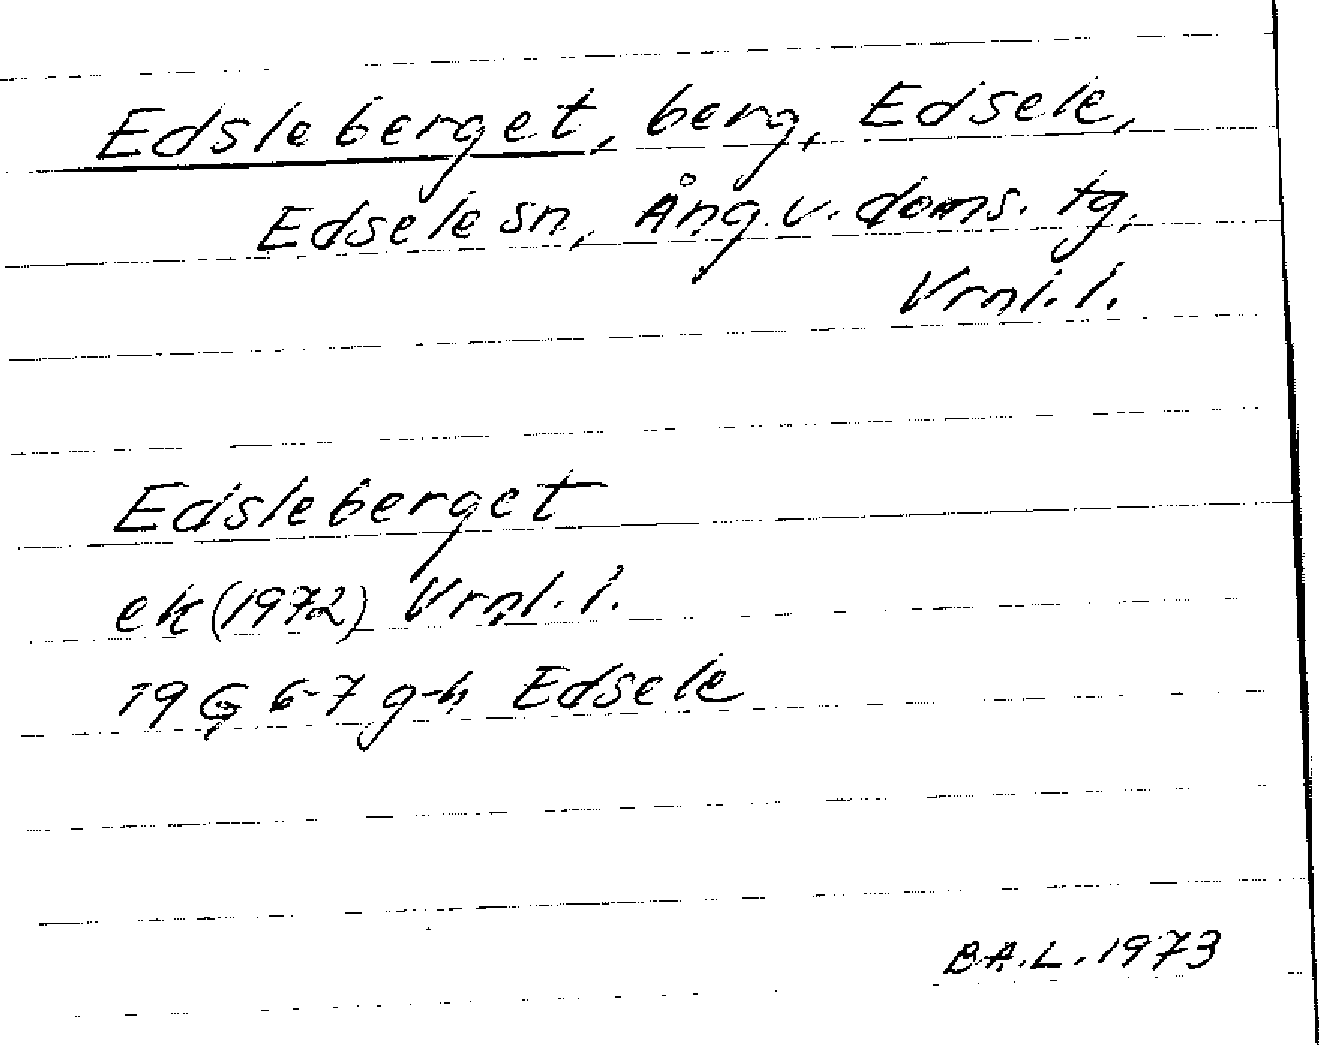 Edsleberget, berg, Edsele,
Edsele sn, Ång. v. doms. tg,
Vrnl. l.
Edsleberget
ek (1972) Vrnl. l.
19 G 6-7 g-h Edsele
B A. L. 1973